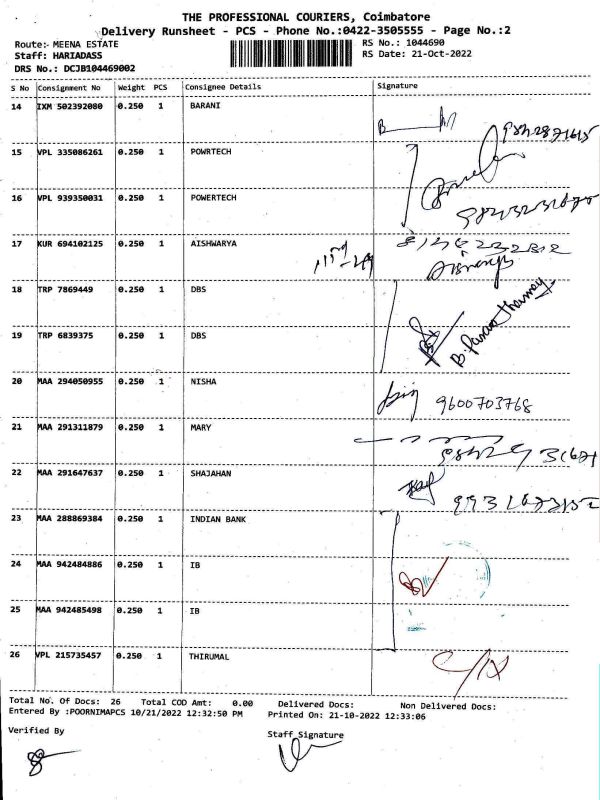 THE PROFESSIONAL COURIERS, Coimbatore
Delivery Runsheet - PCS - Phone No.:0422-3505555 - Page No.:2
Route:- MEENA ESTATE RS No.: 1044690
Staff: HARIADASS RS Date: 21-Oct-2022
DRS No.: DCJB104469002
S No Consignment No Weight PCS Consignee Details Signature
14 IXM 502392080 0.250 1 BARANI
15 VPL 335086261 0.250 1 POWRTECH
16 VPL 939350031 0.250 1 POWERTECH
17 KUR 694102125 0.250 1 AISHWARYA
18 TRP 7869449 0.250 1 DBS
19 TRP 6839375 0.250 1 DBS
20 MAA 294050955 0.250 1 NISHA 9600703768
21 MAA 291311879 0.250 1 MARY
22 MAA 291647637 0.250 1 SHAJAHAN
23 MAA 288869384 0.250 1 INDIAN BANK
24 MAA 942484886 0.250 1 IB
25 MAA 942485498 0.250 1 IB
26 VPL 215735457 0.250 1 THIRUMAL
Total No. Of Docs: 26 Total COD Amt: 0.00 Delivered Docs: Non Delivered Docs:
Entered By :POORNIMAPCS 10/21/2022 12:32:50 PM Printed On: 21-10-2022 12:33:06
Verified By Staff Signature